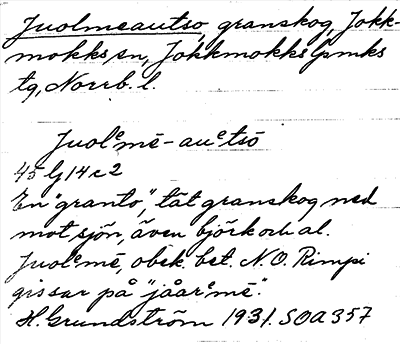 Juolmeautso, granskog, Jokk-
mokks sn, Jokkmokks lpmks
tg, Norrb. l.
Juolᵉmē-auᵉtsō
45 G 14 c 2
En "granto", tät granskog ned
mot sjön, även björk och al.
Juolᵉmē, obek. bet. N.O. Rimpi
gissar på "jåarᵉmē".
H. Grundström 1931. SOA 357